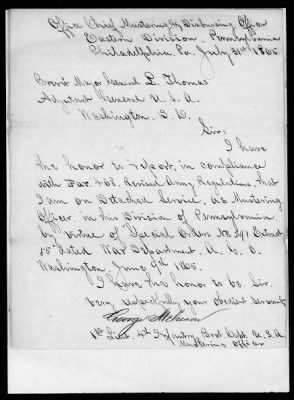 Office Chief Mustering & Disbursing Officer
Eastern Division, Pennsylvania
Philadelphia Pa. July 31st 1865.
Brevet Major General L. Thomas
Adjutant General U.S.A.
Washington. D.C.
Sir:
I have
the honor to report, in compliance
with Par. 468. Revised Army Regulations, that
I am on Detached Service, as Mustering
Officer, in this Division of Pennsylvania,
by virtue of Special Orders No. 291 Extract
15 dated War Department, A.G.O.
Washington, June 9th 1865.
I have the honor to be, Sir,
very respectfully your obedient servant,
George
1st Lieut. 4th Infantry Brvt. Capt. U.S.A
Mustering Officer